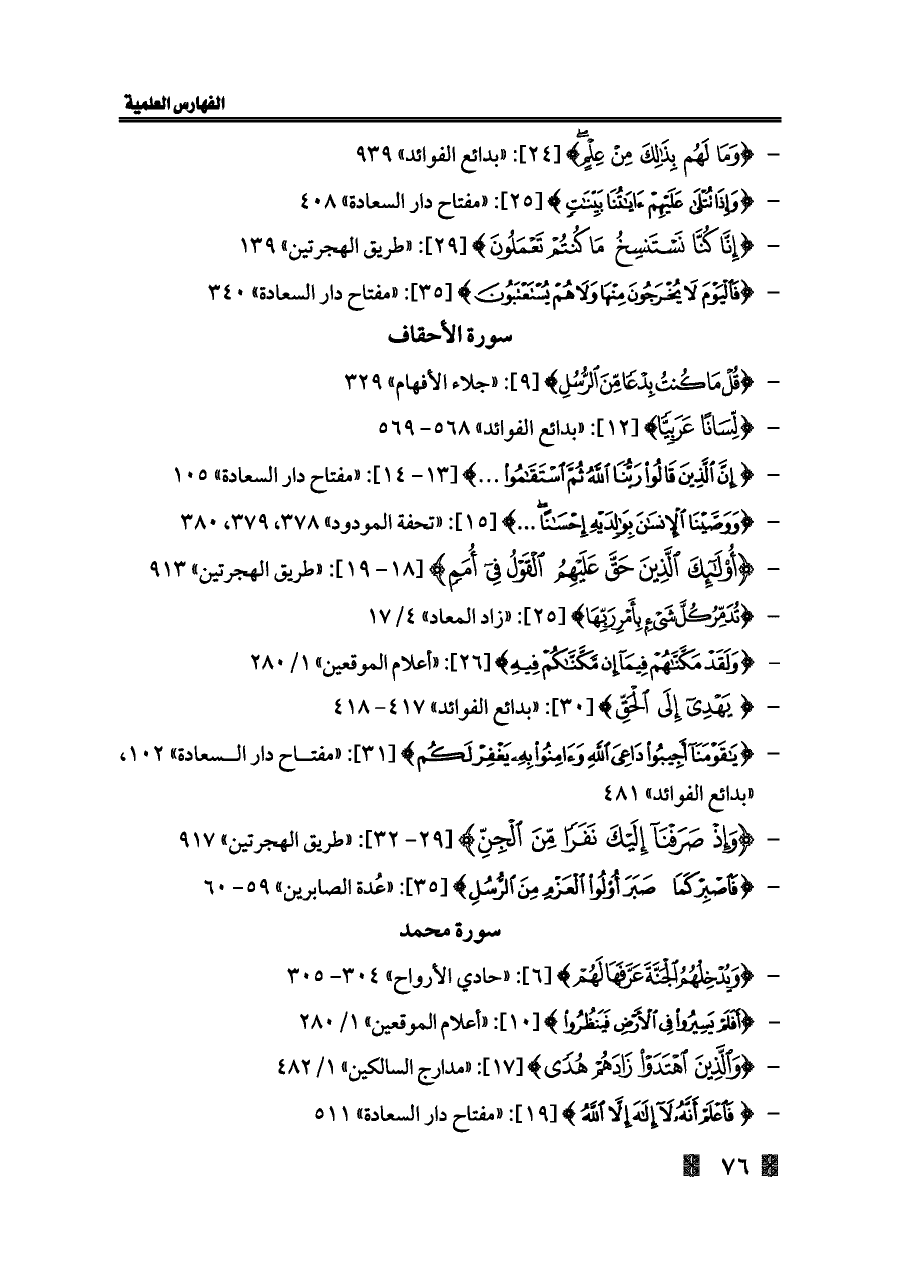 الفهارس العلمية
- ﴿وَمَا لَهُم بِذَٰلِكَ مِنْ عِلْمٍۖ﴾ [٢٤]: «بدائع الفوائد» ٩٣٩
- ﴿وَإِذَا تُتْلَىٰ عَلَيْهِمْ ءَايَٰتُنَا بَيِّنَٰتٍ﴾ [٢٥]: «مفتاح دار السعادة» ٤٠٨
- ﴿إِنَّا كُنَّا نَسْتَنسِخُ مَا كُنتُمْ تَعْمَلُونَ﴾ [٢٩]: «طريق الهجرتين» ١٣٩
- ﴿فَٱلْيَوْمَ لَا يُخْرَجُونَ مِنْهَا وَلَا هُمْ يُسْتَعْتَبُونَ﴾ [٣٥]: «مفتاح دار السعادة» ٣٤٠
سورة الأحقاف
- ﴿قُلْ مَا كُنتُ بِدْعًا مِّنَ ٱلرُّسُلِ﴾ [٩]: «جلاء الأفهام» ٣٢٩
- ﴿لِّسَانًا عَرَبِيًّا﴾ [١٢]: «بدائع الفوائد» ٥٦٨- ٥٦٩
- ﴿إِنَّ ٱلَّذِينَ قَالُوا۟ رَبُّنَا ٱللَّهُ ثُمَّ ٱسْتَقَٰمُوا۟ ...﴾ [١٣- ١٤]: «مفتاح دار السعادة» ١٠٥
- ﴿وَوَصَّيْنَا ٱلْإِنسَٰنَ بِوَٰلِدَيْهِ إِحْسَٰنًاۖ ...﴾ [١٥]: «تحفة المودود» ٣٧٨، ٣٧٩، ٣٨٠
- ﴿أُو۟لَٰٓئِكَ ٱلَّذِينَ حَقَّ عَلَيْهِمُ ٱلْقَوْلُ فِىٓ أُمَمٍ﴾ [١٨- ١٩]: «طريق الهجرتين» ٩١٣
- ﴿تُدَمِّرُ كُلَّ شَىْءٍ بِأَمْرِ رَبِّهَا﴾ [٢٥]: «زاد المعاد» ٤/ ١٧
- ﴿وَلَقَدْ مَكَّنَّٰهُمْ فِيمَآ إِن مَّكَّنَّٰكُمْ فِيهِ﴾ [٢٦]: «أعلام الموقعين» ١/ ٢٨٠
- ﴿يَهْدِىٓ إِلَى ٱلْحَقِّ﴾ [٣٠]: «بدائع الفوائد» ٤١٧- ٤١٨
- ﴿يَٰقَوْمَنَآ أَجِيبُوا۟ دَاعِىَ ٱللَّهِ وَءَامِنُوا۟ بِهِۦ يَغْفِرْ لَكُم﴾ [٣١]: «مفتـاح دار الـسعادة» ١٠٢،
«بدائع الفوائد» ٤٨١
- ﴿وَإِذْ صَرَفْنَآ إِلَيْكَ نَفَرًا مِّنَ ٱلْجِنِّ﴾ [٢٩- ٣٢]: «طريق الهجرتين» ٩١٧
- ﴿فَٱصْبِرْ كَمَا صَبَرَ أُو۟لُوا۟ ٱلْعَزْمِ مِنَ ٱلرُّسُلِ﴾ [٣٥]: «عُدة الصابرين» ٥٩- ٦٠
سورة محمد
- ﴿وَيُدْخِلُهُمُ ٱلْجَنَّةَ عَرَّفَهَا لَهُمْ﴾ [٦]: «حادي الأرواح» ٣٠٤- ٣٠٥
- ﴿أَفَلَمْ يَسِيرُوا۟ فِى ٱلْأَرْضِ فَيَنظُرُوا۟﴾ [١٠]: «أعلام الموقعين» ١/ ٢٨٠
- ﴿وَٱلَّذِينَ ٱهْتَدَوْا۟ زَادَهُمْ هُدًى﴾ [١٧]: «مدارج السالكين» ١/ ٤٨٢
- ﴿فَٱعْلَمْ أَنَّهُۥ لَآ إِلَٰهَ إِلَّا ٱللَّهُ﴾ [١٩]: «مفتاح دار السعادة» ٥١١
٧٦